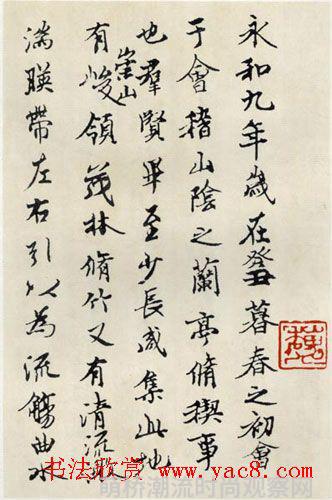 永和九年歲在癸丑暮春之初會
于會稽山陰之蘭亭脩稧事
也羣賢畢至少長咸集此地
有崇山峻領茂林脩竹又有清流激
湍暎帶左右引以為流觴曲水
书法欣赏 www.yac8.com
萌桥潮流时尚观察网